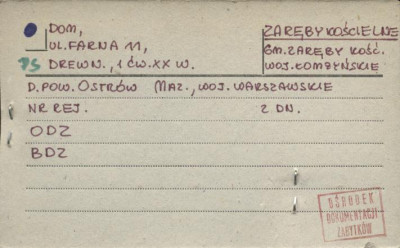 DOM,
UL. FARNA 11,
DREWN., 1 ĆW. XX W.
ZARĘBY KOŚCIELNE
GM. ZARĘBY KOŚC.
WOJ. ŁOMŻYŃSKIE
D. POW. OSTRÓW MAZ., WOJ. WARSZAWSKIE
NR REJ. Z DN.
ODZ
BDZ
OŚRODEK
DOKUMENTACJI
ZABYTKÓW